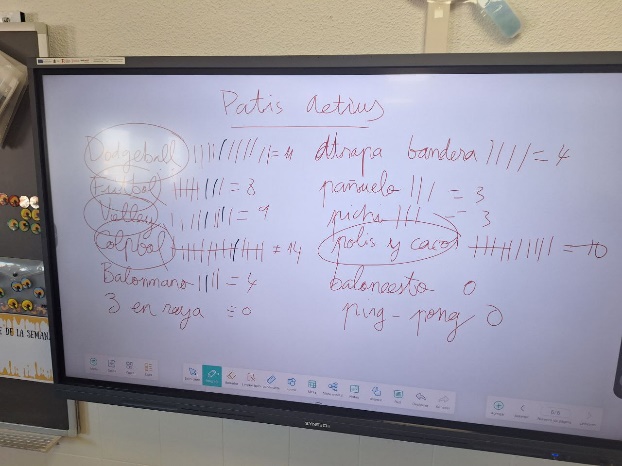 Patis Actius
Dodgeball ||||||||||| = 11
Futbol |||||||| = 8
Volley ||||||||| = 9
Colpbol |||||||||||||| = 14
Balonmano |||| = 4
3 en raya = 0
Atrapa bandera |||| = 4
pañuelo ||| = 3
picha ||| = 3
polis y cacos |||||||||| = 10
baloncesto 0
ping-pong 0
DE LA SEMANA